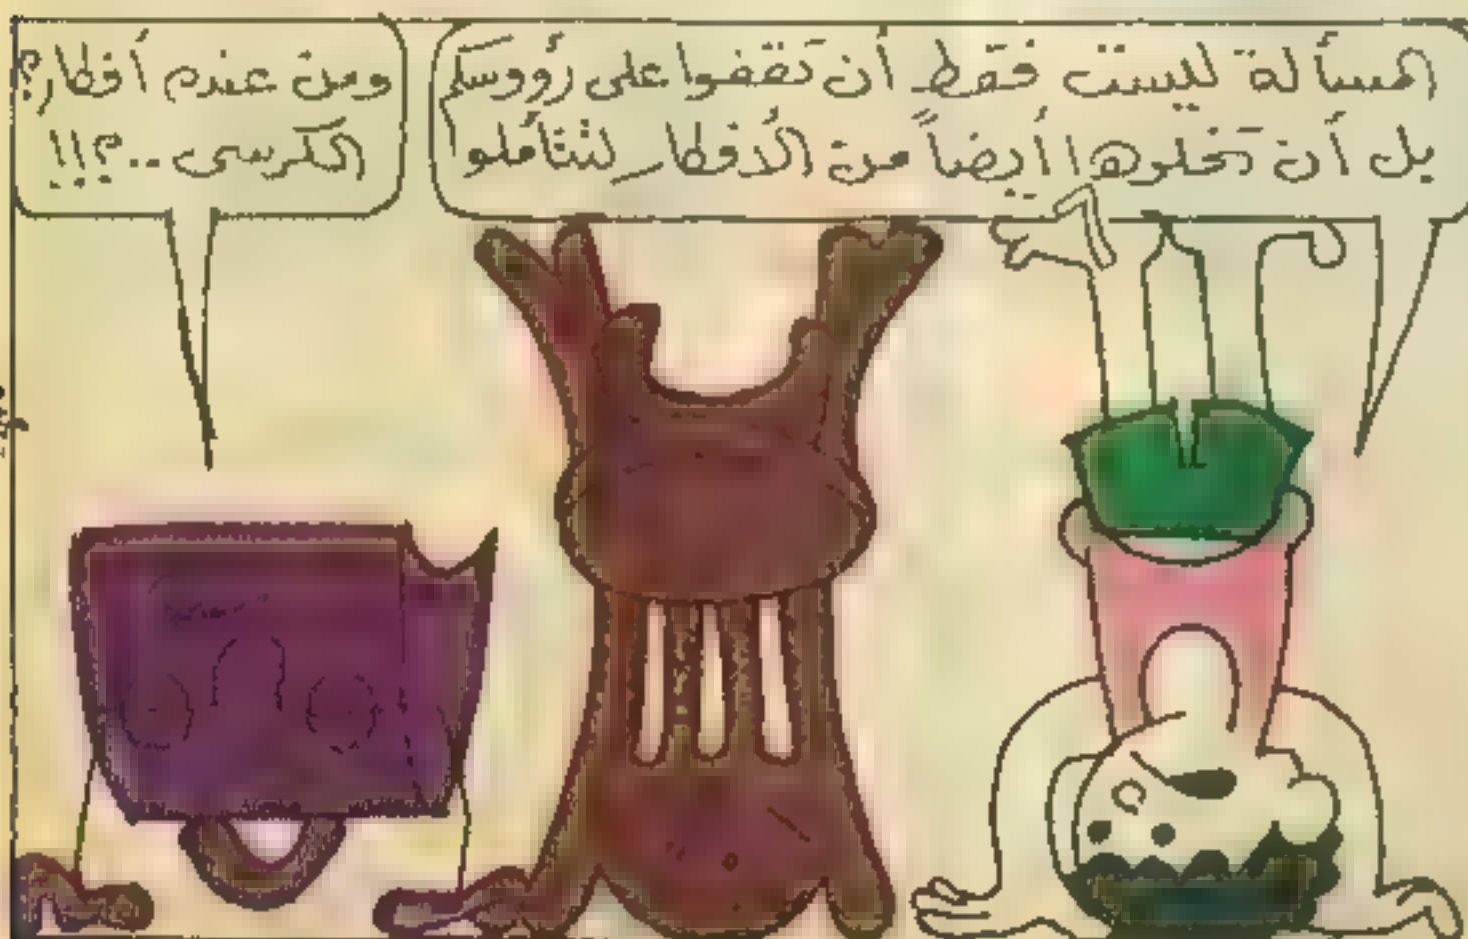 المسألة ليست فقط أن تقفوا على رؤوسكم
بل أن تخلوها أيضاً من الأفكار لتتأملوا
ومن عندم أفكار؟
الكرسي ..؟!!